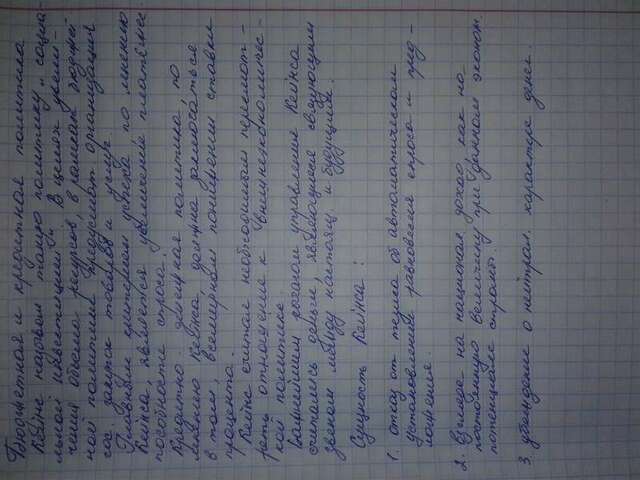 Бюджетная и кредитная политика
Кейнс назывом такую политику "социа-
льной инвестицией". В целях увели-
чения объема ресурсов, в рамках бюджет
ной политики предусмат. организация
гос. закупок товаров и услуг.
Главным критерием успеха, по мнению
Кейнса, является увеличение платежес-
пособности спроса.
Кредитно-денежная политика, по
мнению Кейнса, должна заключаться
в том, всемирном понижении ставки
процента.
Кейнс считал необходимым пересмот-
реть отношение к внешнеэкономичес-
кой политике.
Важнейшим рычагом управления Кейнса
считались деньги, являющиеся связующим
звеном между настоящ. и будущим.
Сущность Кейнса:
1. отказ от тезиса об автоматическом
установлении равновесия спроса и пред-
ложения.
2. взгляде на национал. доход, как на
постоянную величину при данном эконом.
потенциале страны.
3. убеждение о нейтрал. характере денег.